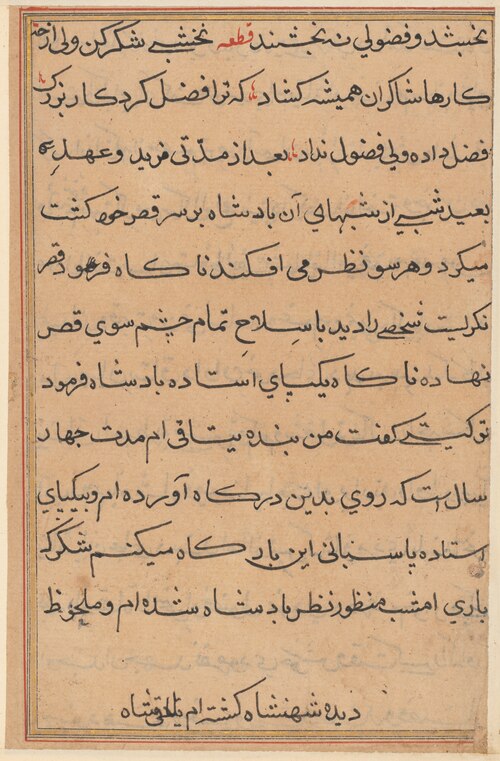 نخبشد و فضولي نه بخشند قطعه نخشبے شکر کن ولی از حق
کارها شاکران همیشه کشاد که ترا فضل کرد کار بزرک
فضل داده ولی فضول نداد بعد از مدّتی مرید و عهدِ
بعید شبے از شبهاءِ آن بادشاه بر سر قصر خود کشت
میکرد و هر سو نظر می افکند ناکاه فرود قصر
نکرلیت شخصے را دید با سِلاحِ تمام چشم سوي قصر
نهاده ناکاه بیکپاي استاده بادشاه فرمود
تو کیستے کفت من بنده یتاقی ام مدت چهار
سال است که روي بدین درکاه آورده ام و بیکپاي
استاده پاسبانی این بارکاه میکنم شکر که
باري امشب منظور نظر بادشاه شده ام و ملحوظ
دیده شهنشاه کشته ام